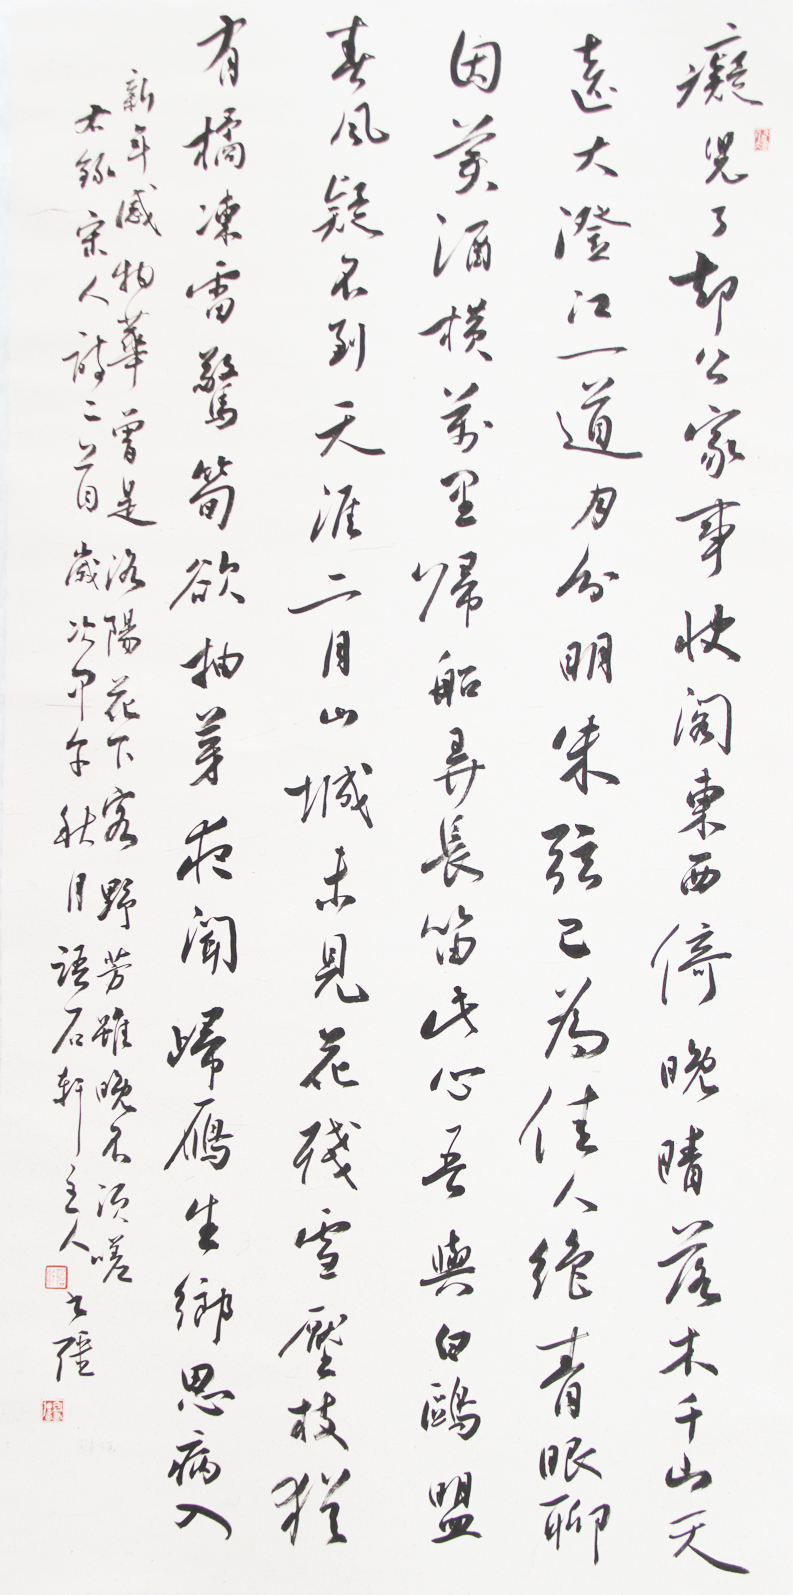 癡兒了却公家事快閣東西倚晚晴落木千山天
遠大澄江一道月分明朱弦已為佳人絕青眼聊
因美酒橫萬里歸船弄長笛此心吾與白鷗盟
春風疑不到天涯二月山城未見花殘雪壓枝猶
有橘凍雷驚筍欲抽芽夜聞歸雁生鄉思病入
新年感物華曾是洛陽花下客野芳雖晚不須嗟
右錄宋人詩二首歲次甲午秋月語石軒主人